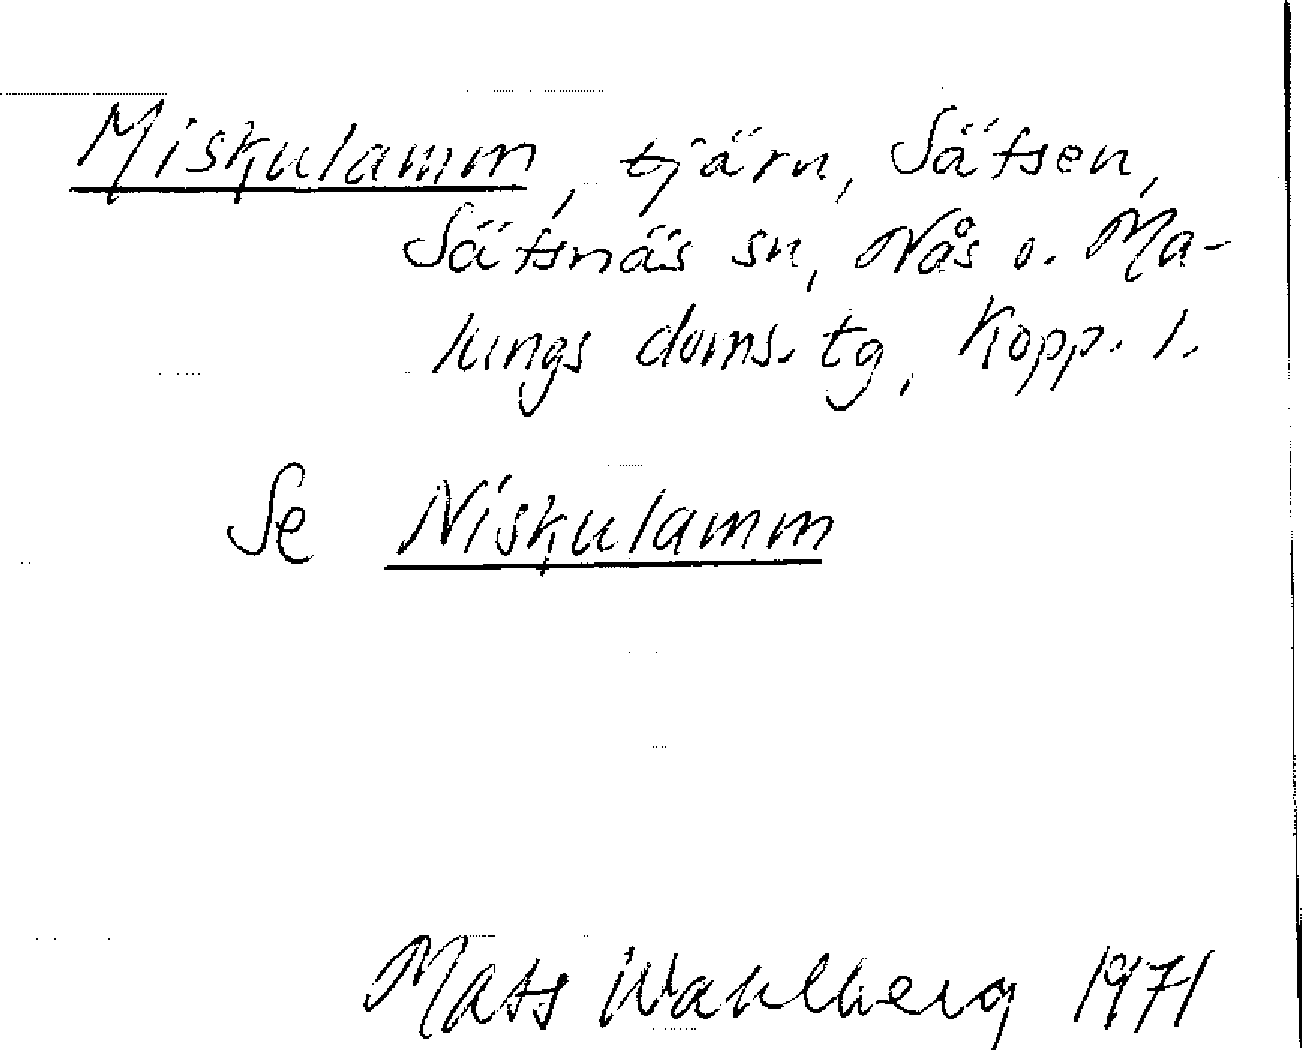 Miskulamm, tjärn, Sätsen,
Sätsnäs sn, Nås o. Ma-
lungs doms. tg, Kopp. l.
Se Niskulamm
Mats Wahlberg 1971